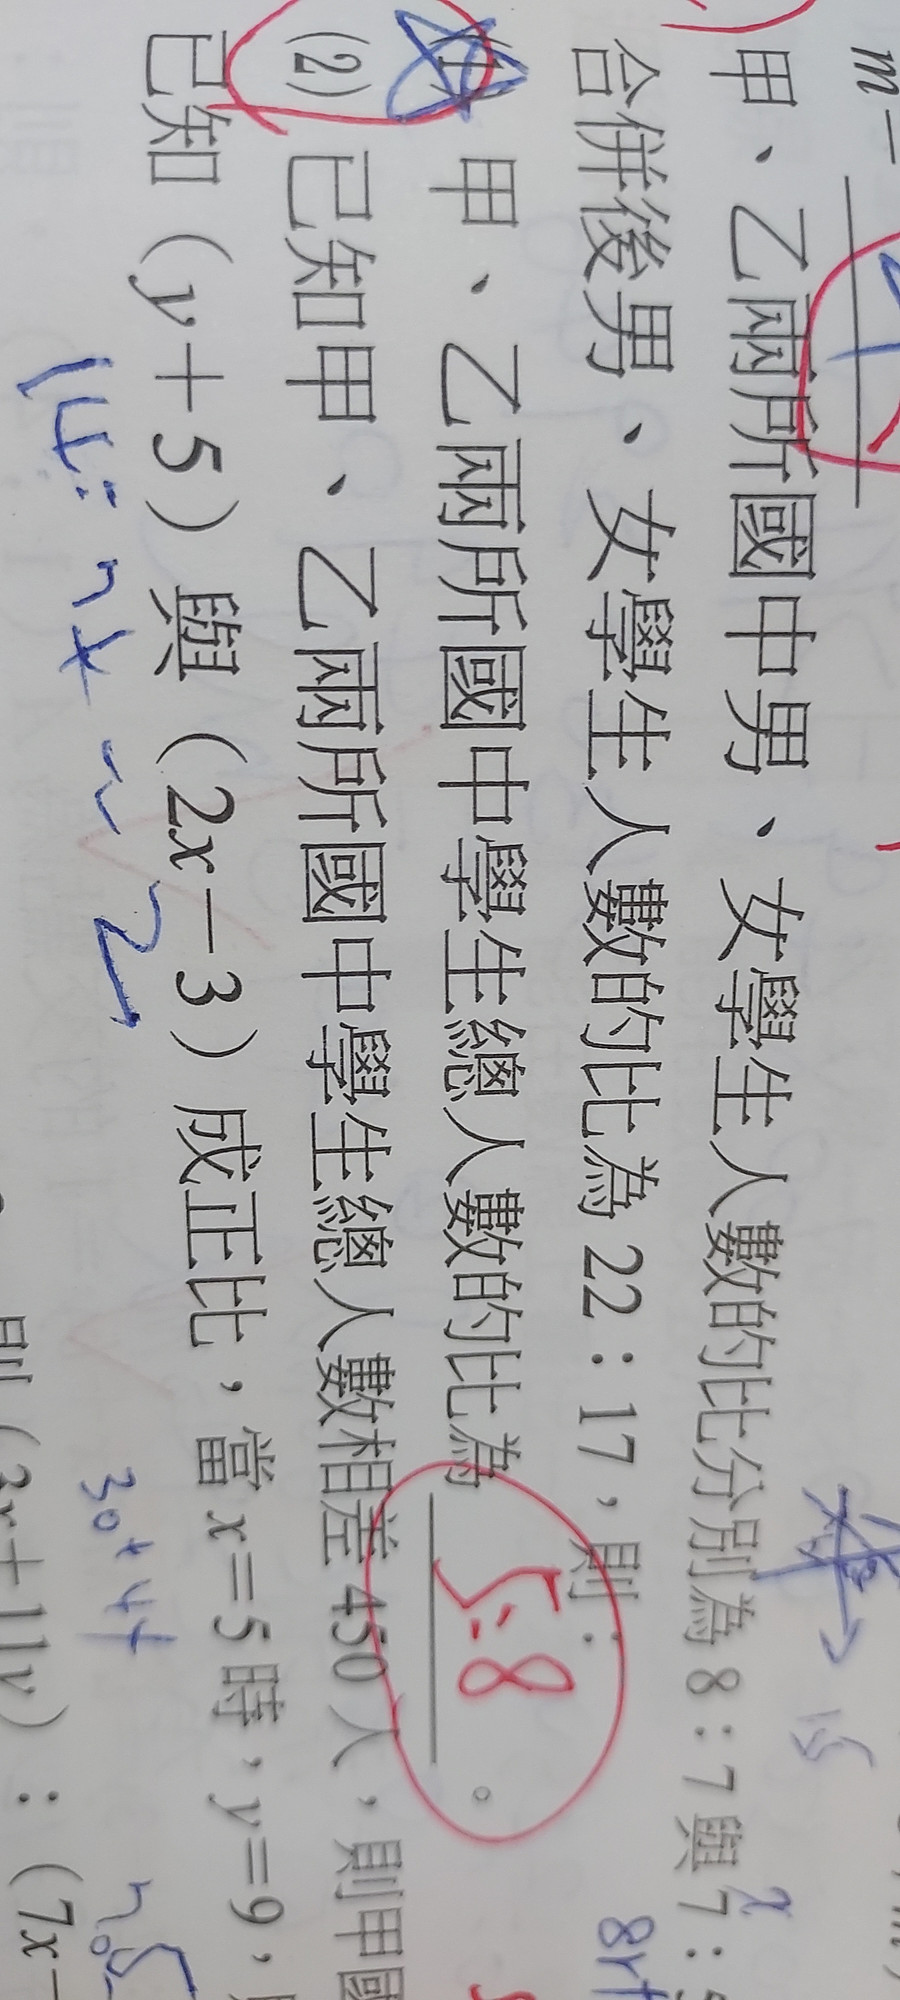 m－
甲、乙兩所國中男、女學生人數的比分別為 8：7 與 7：
合併後男、女學生人數的比為 22：17，則：
甲、乙兩所國中學生總人數的比為 5:8 。
(2) 已知甲、乙兩所國中學生總人數相差 450 人，則甲國
已知（y＋5）與（2x－3）成正比，當 x＝5 時，y＝9，
則（3x＋11y）：（7x－
15
8r+
14:
30+4